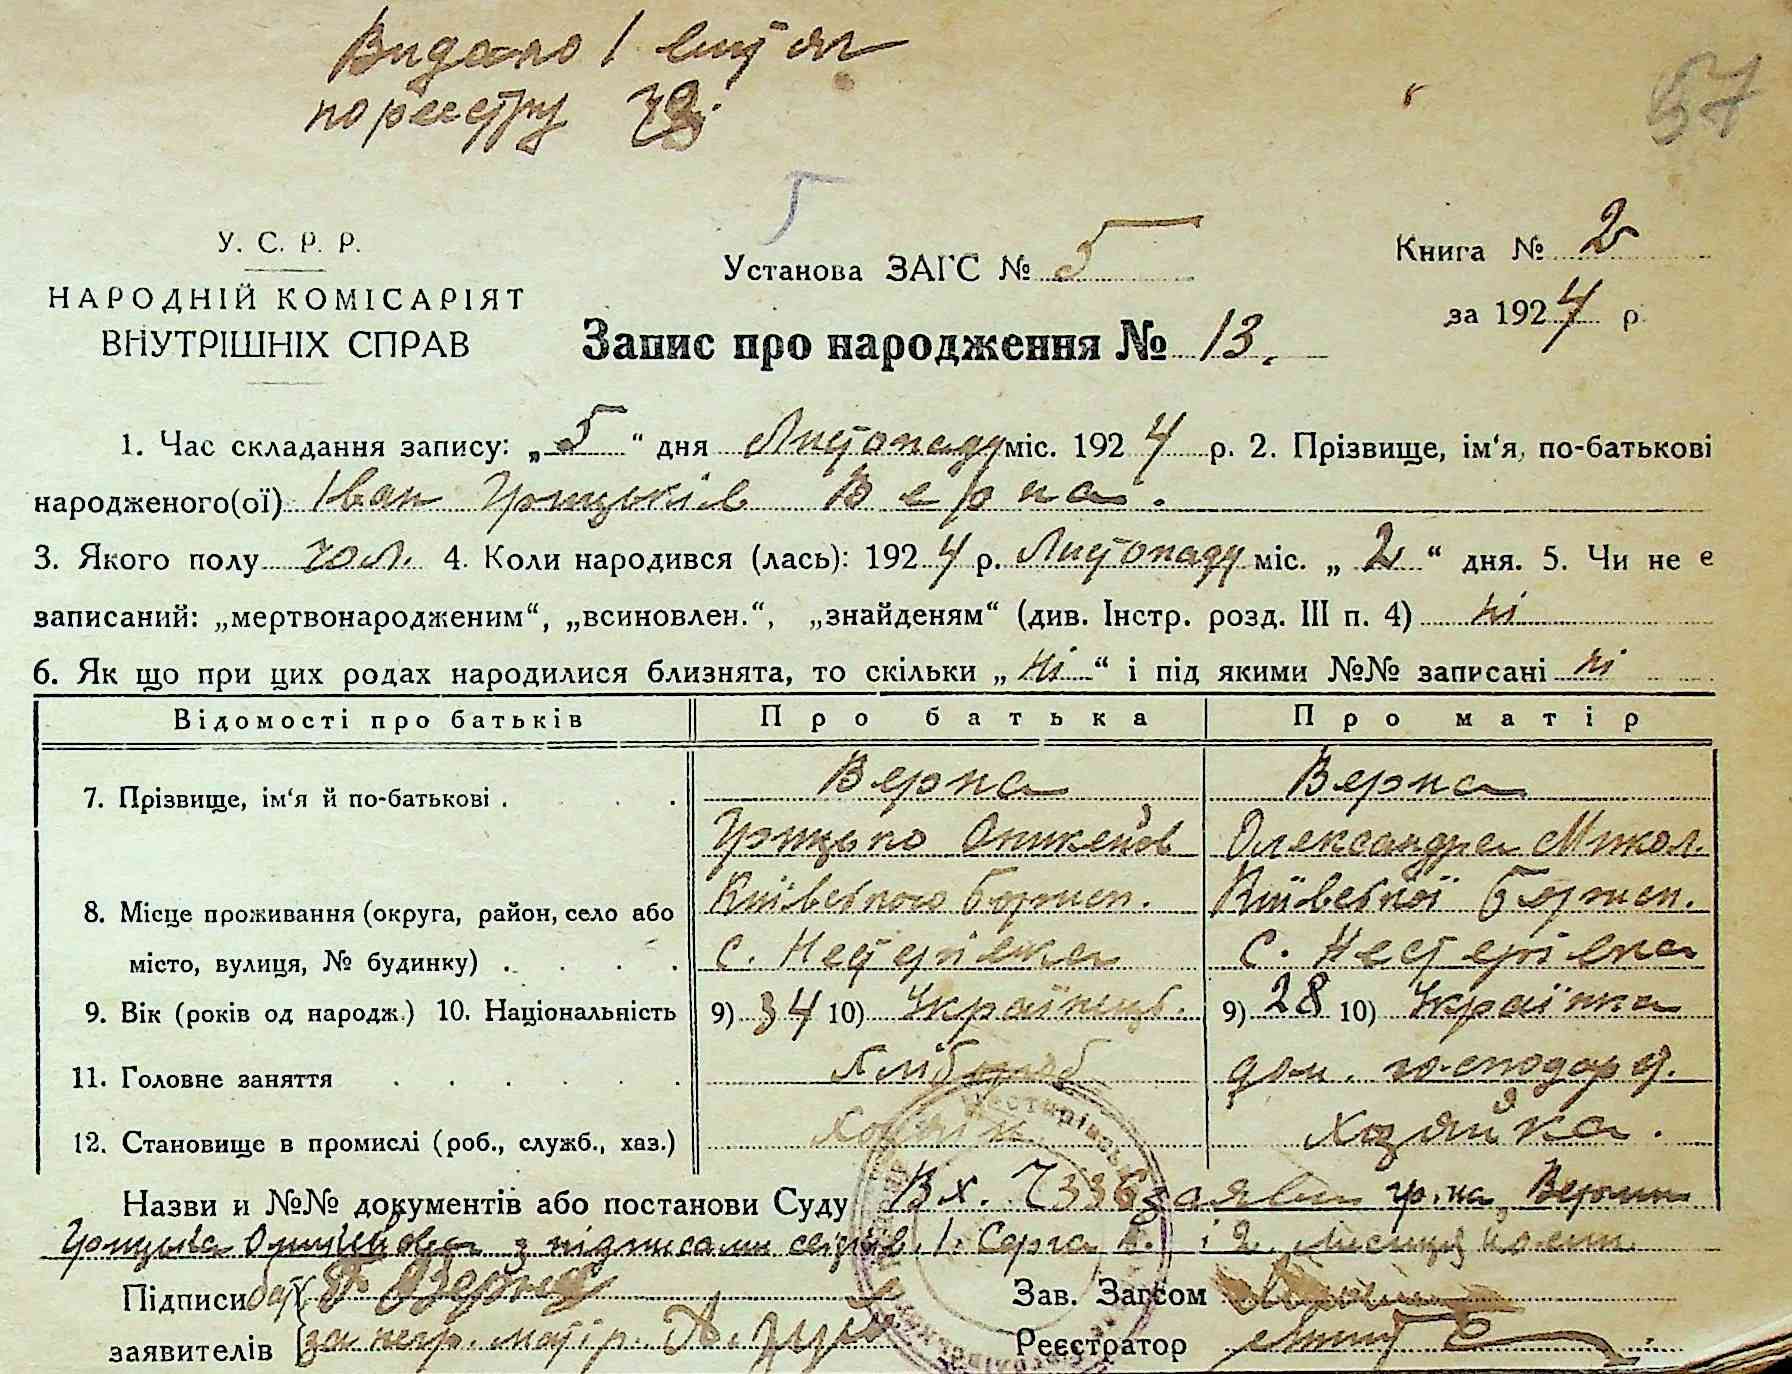 Видано 1 лист.
по реєстру
57
5
У. С. Р. Р.
НАРОДНІЙ КОМІСАРІЯТ
ВНУТРІШНІХ СПРАВ
Установа ЗАГС № 5
Книга № 2
за 1924 р.
Запис про народження № 13.
1. Час складання запису: „5“ дня Листопаду міс. 1924 р. 2. Прізвище, ім‘я, по-батькові
народженого(ої) Іван Грицьків Верна.
3. Якого полу чол. 4. Коли народився (лась): 1924 р. Листопаду міс. „2“ дня. 5. Чи не є
записаний: „мертвонародженим“, „всиновлен.“, „знайденям“ (див. Інстр. розд. III п. 4) ні
6. Як що при цих родах народилися близнята, то скільки „ні“ і під якими №№ записані ні
Відомості про батьків Про батька Про матір
7. Прізвище, ім‘я й по-батькові . . . Верна Верна
Грицько Оникеїв Олександра Микол.
8. Місце проживання (округа, район, село або Київського Боршен. Київської Боршен.
місто, вулиця, № будинку) . . . . с. Нестерівка с. Нестерівка
9. Вік (років од народж.) 10. Національність 9) 34 10) Українець. 9) 28 10) Українка
11. Головне заняття . . . . . . Хлібороб дом. господар.
12. Становище в промислі (роб., служб., хаз.) Хозяїн Хозяйка.
Назви и №№ документів або постанови Суду Вх. 7336 заява гр-на Верни
Грицька з підписами свідків. 1. Серга і 2.
Підписи бат. Г Верна Зав. Загсом
заявителів за негр. матір. Реєстратор